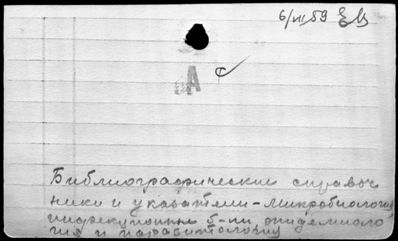 6/VII 59
А
Библиографические справоч
ники и указатели - микробиология
инфекционные б-ни, эпидемиоло
гия и паразитология